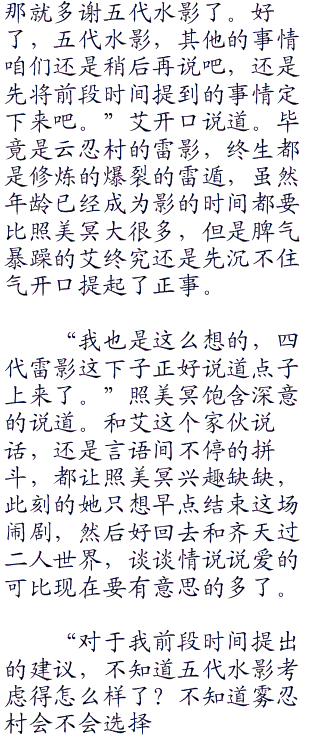 那就多谢五代水影了。好
了，五代水影，其他的事情
咱们还是稍后再说吧，还是
先将前段时间提到的事情定
下来吧。”艾开口说道。毕
竟是云忍村的雷影，终生都
是修炼的爆裂的雷遁，虽然
年龄已经成为影的时间都要
比照美冥大很多，但是脾气
暴躁的艾终究还是先沉不住
气开口提起了正事。
“我也是这么想的，四
代雷影这下子正好说道点子
上来了。”照美冥饱含深意
的说道。和艾这个家伙说
话，还是言语间不停的拼
斗，都让照美冥兴趣缺缺，
此刻的她只想早点结束这场
闹剧，然后好回去和齐天过
二人世界，谈谈情说说爱的
可比现在要有意思的多了。
“对于我前段时间提出
的建议，不知道五代水影考
虑得怎么样了？不知道雾忍
村会不会选择